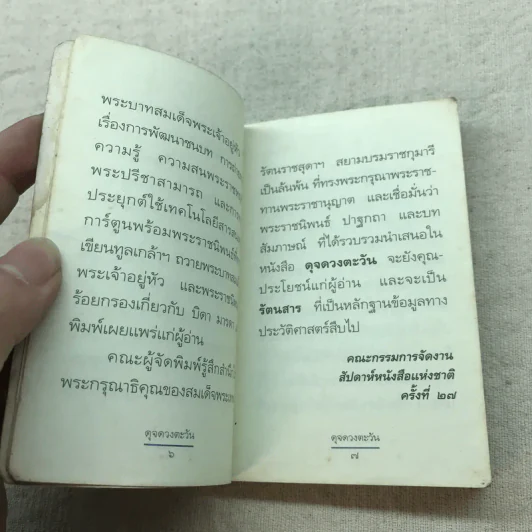 พระบาทสมเด็จพระเจ้าอยู่หัว
เรื่องการพัฒนาชนบท
ความรู้ ความสนพระราช
พระปรีชาสามารถ และการ
ประยุกต์ใช้เทคโนโลยีสาร
การ์ตูนพร้อมพระราชนิพนธ์
เขียนทูลเกล้าฯ ถวายพระบาท
พระเจ้าอยู่หัว และพระราชนิพ
ร้อยกรองเกี่ยวกับ บิดา มารดา
พิมพ์เผยแพร่แก่ผู้อ่าน
คณะผู้จัดพิมพ์รู้สึกสำนึก
พระกรุณาธิคุณของสมเด็จพระเทพ
ดุจดวงตะวัน
๖
รัตนราชสุดาฯ สยามบรมราชกุมารี
เป็นล้นพ้น ที่ทรงพระกรุณาพระราช-
ทานพระราชานุญาต และเชื่อมั่นว่า
พระราชนิพนธ์ ปาฐกถา และบท
สัมภาษณ์ ที่ได้รวบรวมนำเสนอใน
หนังสือ ดุจดวงตะวัน จะยังคุณ-
ประโยชน์แก่ผู้อ่าน และจะเป็น
รัตนสาร ที่เป็นหลักฐานข้อมูลทาง
ประวัติศาสตร์สืบไป
คณะกรรมการจัดงาน
สัปดาห์หนังสือแห่งชาติ
ครั้งที่ ๒๗
ดุจดวงตะวัน
๗